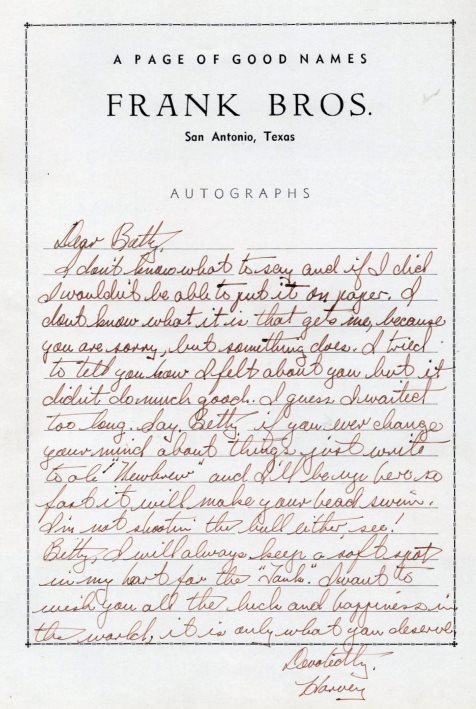 A PAGE OF GOOD NAMES
FRANK BROS.
San Antonio, Texas
AUTOGRAPHS
Dear Betty,
I don't know what to say and if I did
I wouldn't be able to put it on paper. I
dont know what it is that gets me, because
you are sorry, but something does. I tried
to tell you how I felt about you but it
didn't do much good. I guess I waited
too long. Say, Betty, if you ever change
your mind about things just write
to ole and I'll be up here so
fast it will make your head swim.
I'm not shootin the bull either see!
Betty, I will always keep a soft spot
in my hart for the "Tank". I want to
wish you all the luck and happiness in
the world, it is only what you deserve.
Devotedly,
Harvey